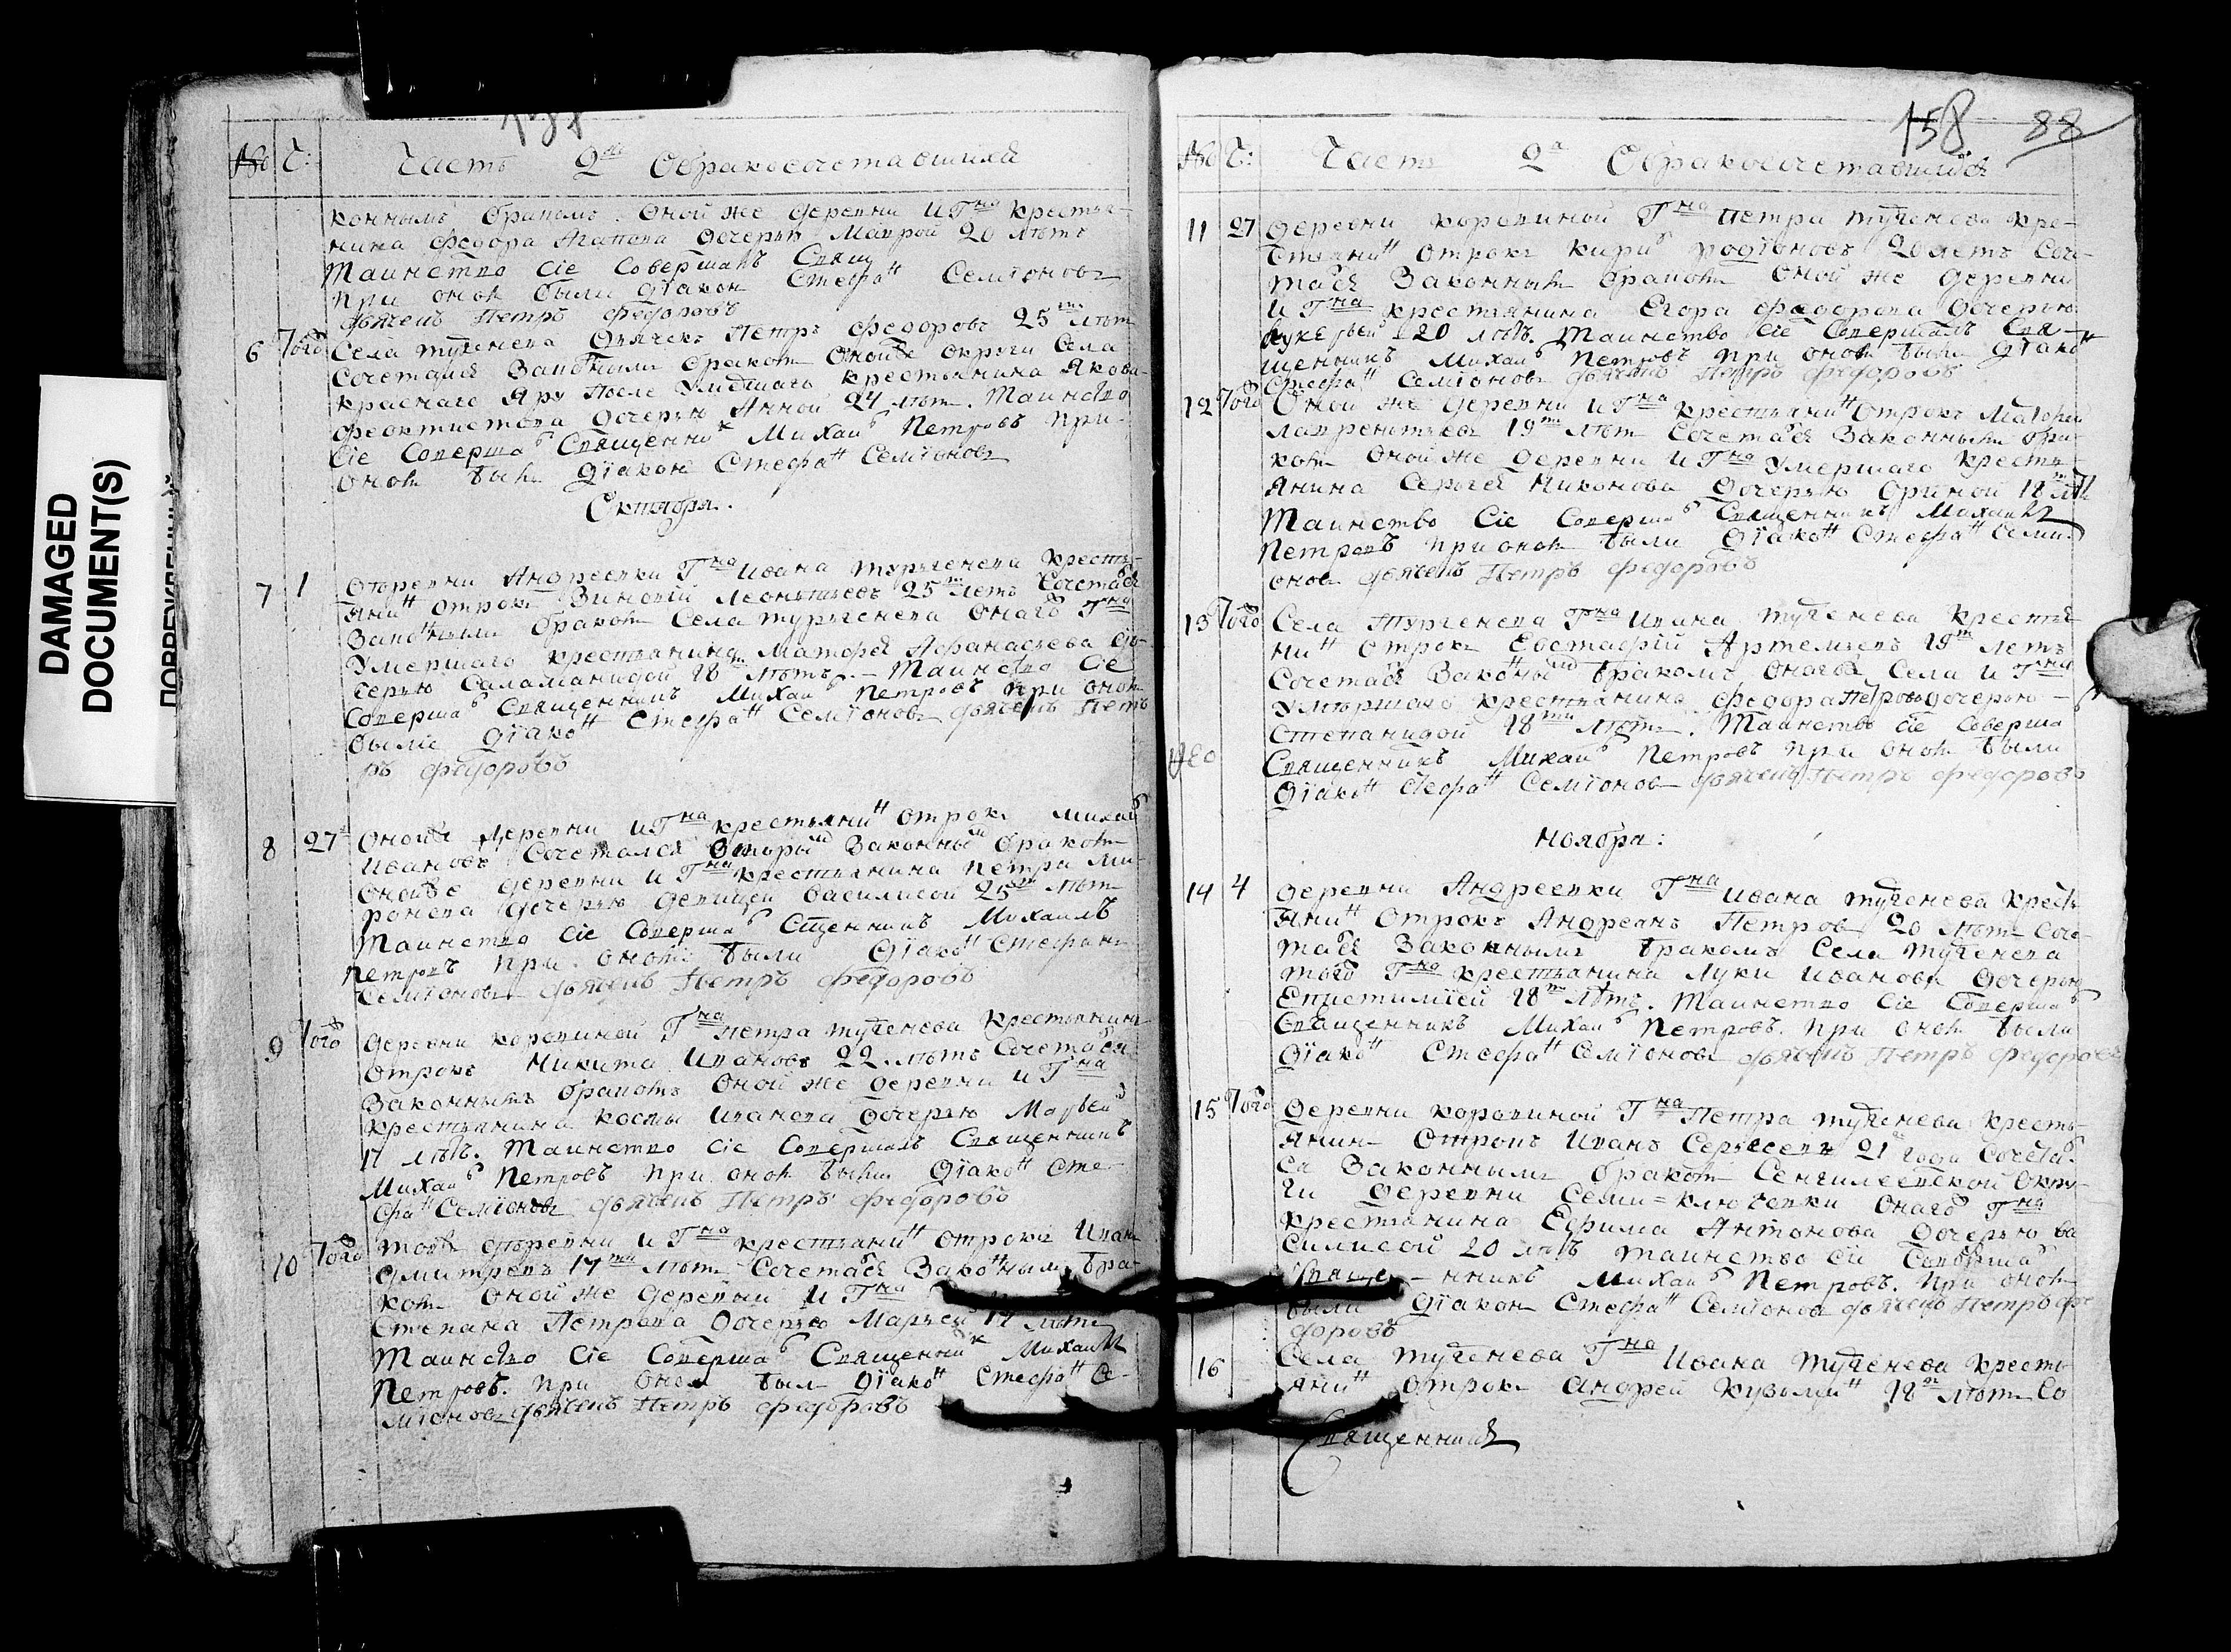 DAMAGED
DOCUMENT(S)
№ Ч: Часть 2я Обракосочетавшихся
конымъ бракомъ. Оной же деревни и Гна крестья-
нина Федора Агапова дочерью Маврой 20 летъ
Таинство сіе Совершалъ Свящ
при ономъ были діакон Стефанъ Семіоновъ
дьячекъ Петръ Федоровъ
6 Того Села тургенева Дьячекъ Петръ Федоровъ 25ти лѣт
Сочетался Законнымъ бракомъ Оной округи Села
краснаго Яру после крестьянина Якова
Феоктистова дочерью Анной 24 лѣт. Таинство
Сіе Соверша Священник Михаилъ Петровъ при
ономъ были Діаконъ Стефанъ Семіоновъ
Октября.
7 1 Деревни Андреевки Гна Ивана тургенева крестья-
янинъ отрокъ Зиновій Леонтьевъ 25ти летъ Сочетался
Законнымъ бракомъ Села тургенева онаго Гна
Умершаго крестьянина Матфея Афанасьева до-
черью Саламанидой 18ти лѣтъ. - Таинство Сіе
Соверша Священникъ Михаилъ Петровъ при ономъ
были Діаконъ Стефанъ Семіоновъ дьячекъ Пет
ръ Федоровъ
8 27 Оной же Деревни и Гна крестьянинъ отрокъ Михаилъ
Ивановъ Сочетался Вторымъ Законнымъ бракомъ
Оной же деревни и Гна крестьянина Петра Ми-
ронова дочерью девицей Василисой 25ти лѣт
Таинство Сіе Соверша Сщенникъ Михаилъ
Петровъ при ономъ были Діаконъ Стефанъ
Семіоновъ дьячекъ Петръ Федоровъ
9 Того Деревни коровиной Гна Петра тургенева Крестьянинъ
отрокъ Никита Ивановъ 22 лѣтъ Сочетался
Законнымъ бракомъ Оной же деревни и Гна
крестьянина косты Иванова дочерью Марьей
17 лѣтъ. Таинство Сіе Совершалъ Священникъ
Михаилъ Петровъ при ономъ были Діаконъ Сте-
фанъ Семіоновъ дьячекъ Петръ Федоровъ
10 Того той же деревни и Гна крестьянинъ отрокъ Иванъ
Дмитревъ 17ти лѣт Сочетался Законнымъ бра-
комъ Оной же деревни и Гна
Степана Петрова Дочерью Марьей 17 лѣтъ
Таинство Сіе Соверша Священник Михаилъ
Петровъ. при ономъ был Діаконъ Стефанъ Се-
міоновъ дьячекъ Петръ Федоровъ
158 88
№ Ч: Часть 2я Обракосочетавшихся
11 27 Деревни коровиной Гна Петра тургенева кре-
стьянинъ отрокъ кирилъ родіоновъ 20 летъ Соче-
тался Законнымъ бракомъ Оной же деревни
и Гна крестьянина Егора Федорова дочерью
20 лѣтъ. Таинство Сіе Совершалъ Свя-
щенникъ Михаилъ Петровъ при ономъ были Діаконъ
Стефанъ Семіоновъ дьячекъ Петръ Федоровъ
12 Того Оной же Деревни и Гна крестьянинъ отрокъ Матфей
лаврентьевъ 19ти лѣт Сочетался Законнымъ бра-
комъ Оной же деревни и Гна Умершаго крестья-
янина Сергея Никонова дочерью Ориной 18ти лѣт
Таинство Сіе Соверша Священникъ Михаилъ
Петровъ при ономъ были Діаконъ Стефанъ Семі-
оновъ дьячекъ Петръ Федоровъ
13 Того Села Тургенева Гна Ивана тургенева Крестья
нинъ отрокъ Евстафій Артемьевъ 19ти летъ
Сочетался Законнымъ бракомъ онаго Села и Гна
Умершаго крестьянина Федора Петрова дочерью
Степанидой 18ти лѣтъ. Таинство Сіе Соверша
Священникъ Михаилъ Петровъ при ономъ были
Діаконъ Стефанъ Семіоновъ дьячекъ Петръ Федоровъ
Ноября:
14 4 Деревни Андреевки Гна Ивана тургенева крест
янинъ отрокъ Андреанъ Петровъ 20 лѣтъ Соче
тался Законнымъ бракомъ Села тургенева
того Гна крестьянина Луки Иванова дочерью
Епистиміей 18ти лѣтъ. Таинство Сіе Соверша
Священникъ Михаилъ Петровъ. при ономъ были
Діаконъ Стефанъ Семіоновъ дьячекъ Петръ Федоровъ
15 Того Деревни коровиной Гна Петра тургенева кресть
янинъ отрокъ Иванъ Сергеевъ 21 года Сочетал
ся Законнымъ бракомъ Сенгилеевской Окру-
ги деревни Семи=ключевки Онаго Гна
крестьянина Ефима Антонова дочерью ва
силисой 20 лѣтъ таинство Сіе Соверша
Свяще-нникъ Михаилъ Петровъ. при ономъ
были Діакон Стефанъ Семіоновъ дьячекъ Петръ Фе
доровъ
16 Села тургенева Гна Ивана тургенева кресть
янинъ отрокъ Андрей кузьминъ 18ти лѣтъ Со
Священникъ